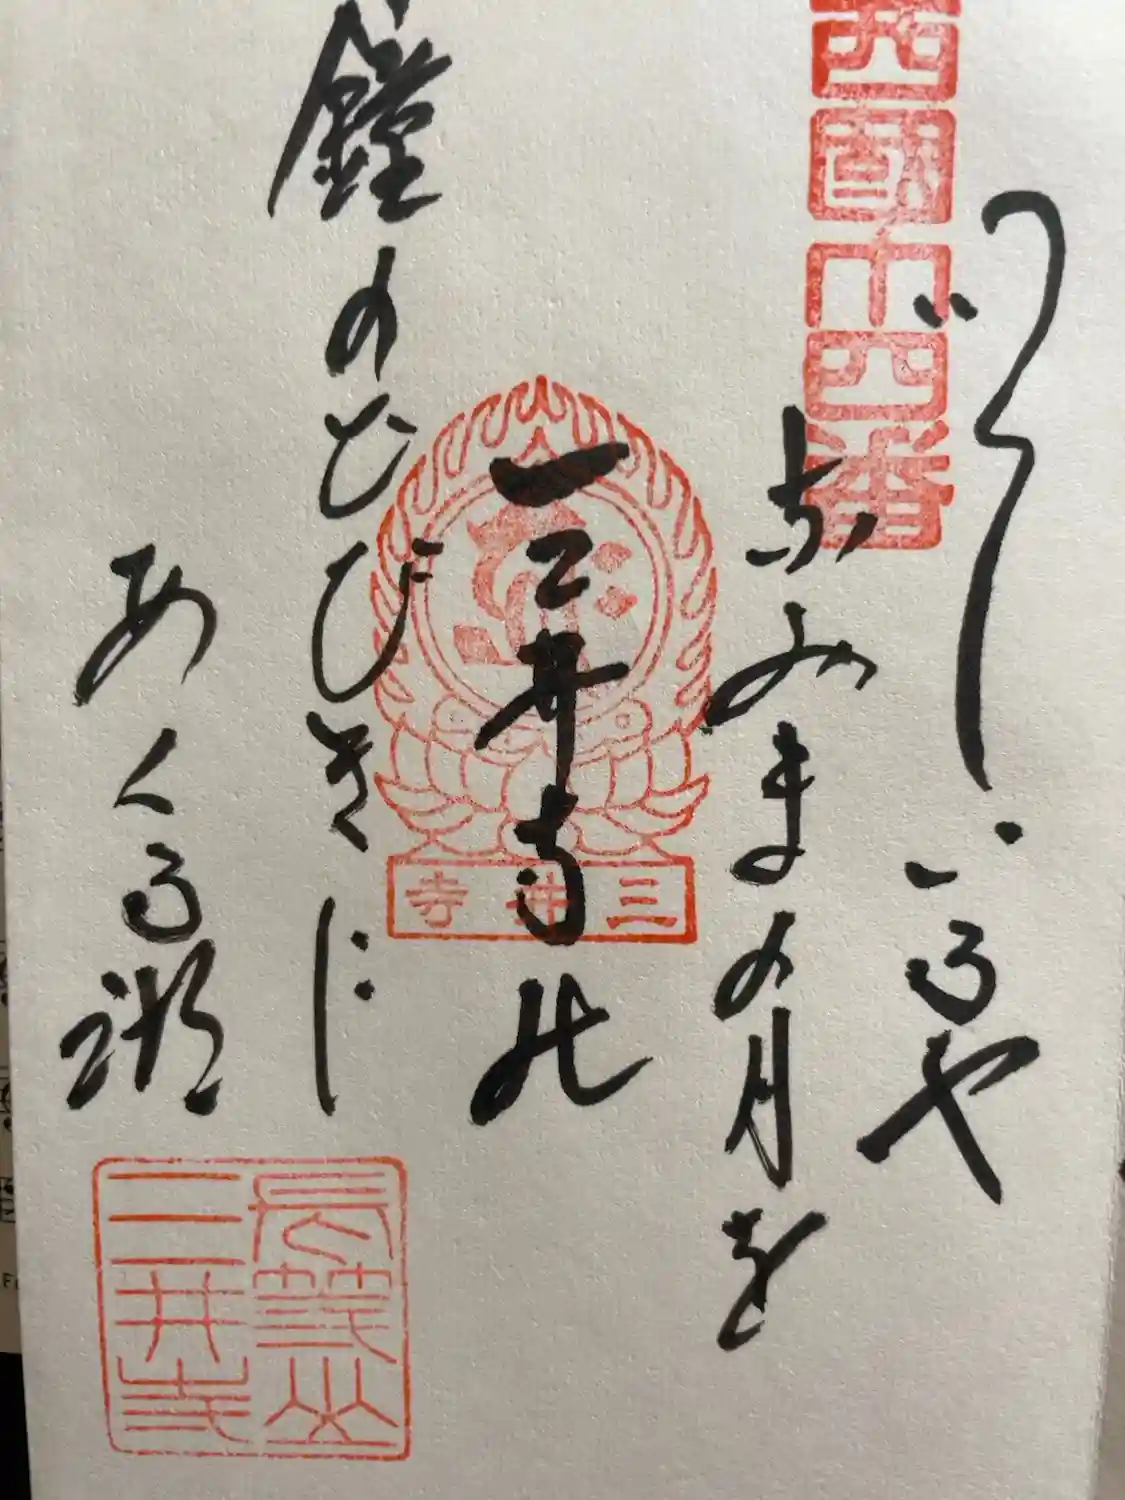 西國十四番
でいるや
なみまの月を
三井寺の
鐘のひびきに
あくる湖
三井寺
長等山
三井寺